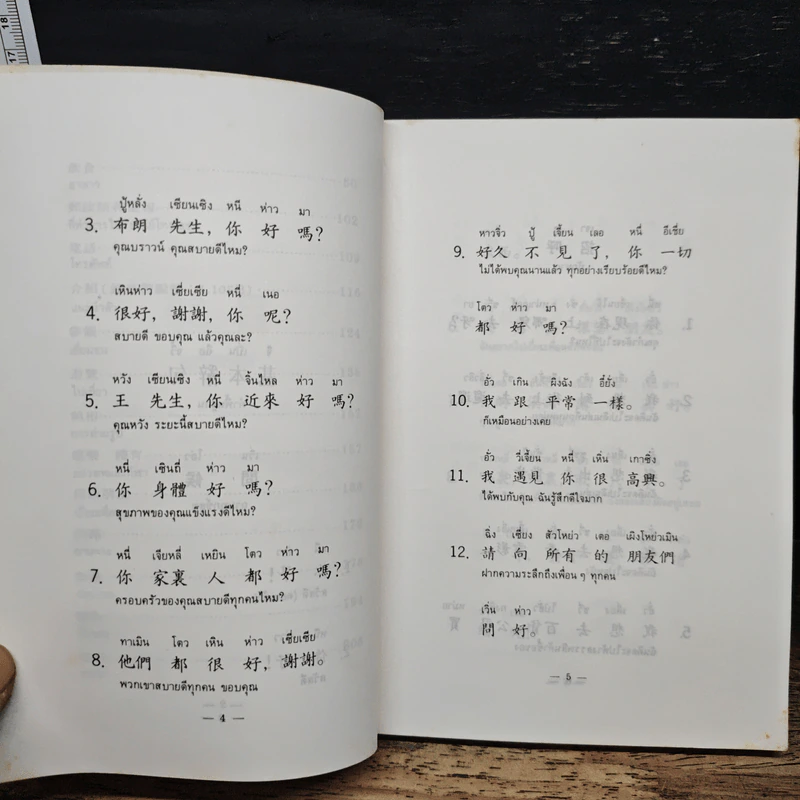 18
17
ปู้หลั่ง เซียนเซิง หนี ห่าว มา
3. 布朗 先生, 你 好 嗎?
คุณบราวน์ คุณสบายดีไหม?
เหินห่าว เซี่ยเซีย หนี่ เนอ
4. 很好, 謝謝, 你 呢?
สบายดี ขอบคุณ แล้วคุณละ?
หวัง เซียนเซิง หนี่ จิ้นไหล ห่าว มา
5. 王 先生, 你 近來 好 嗎?
คุณหวัง ระยะนี้สบายดีไหม?
หนี่ เซินถี่ ห่าว มา
6. 你 身體 好 嗎?
สุขภาพของคุณแข็งแรงดีไหม?
หนี่ เจียหลี่ เหยิน โตว ห่าว มา
7. 你 家裏 人 都 好 嗎?
ครอบครัวของคุณสบายดีทุกคนไหม?
ทาเมิน โตว เหิน ห่าว เซี่ยเซีย
8. 他們 都 很 好, 謝謝。
พวกเขาสบายดีทุกคน ขอบคุณ
— 4 —
หาวจิ่ว ปู้ เจี้ยน เลอ หนี่ อีเซี่ย
9. 好久 不 見 了, 你 一切
ไม่ได้พบคุณนานแล้ว ทุกอย่างเรียบร้อยดีไหม?
โตว ห่าว มา
都 好 嗎?
อั่ว เกิน ผิงฉัง อี้ยั่ง
10. 我 跟 平常 一樣。
ก็เหมือนอย่างเคย
อั่ว วี่เจี้ยน หนี่ เหิ่น เกาซิ่ง
11. 我 遇見 你 很 高興。
ได้พบกับคุณ ฉันรู้สึกดีใจมาก
ฉิ่ง เซี่ยง สัวโหย่ว เตอ เผิงโหย่วเมิน
12. 請 向 所有 的 朋友們
ฝากความระลึกถึงเพื่อน ๆ ทุกคน
เวิ่น ห่าว
問 好。
— 5 —